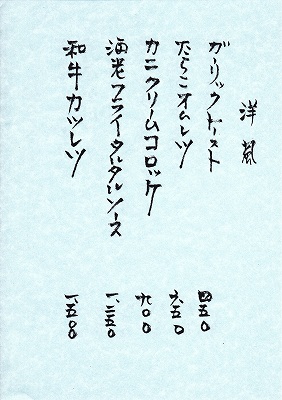 洋風
ガーリックトースト 四五〇
たらこオムレツ 六五〇
カニクリームコロッケ 九〇〇
海老フライタルタルソース 一、二五〇
和牛カツレツ 一、五〇〇